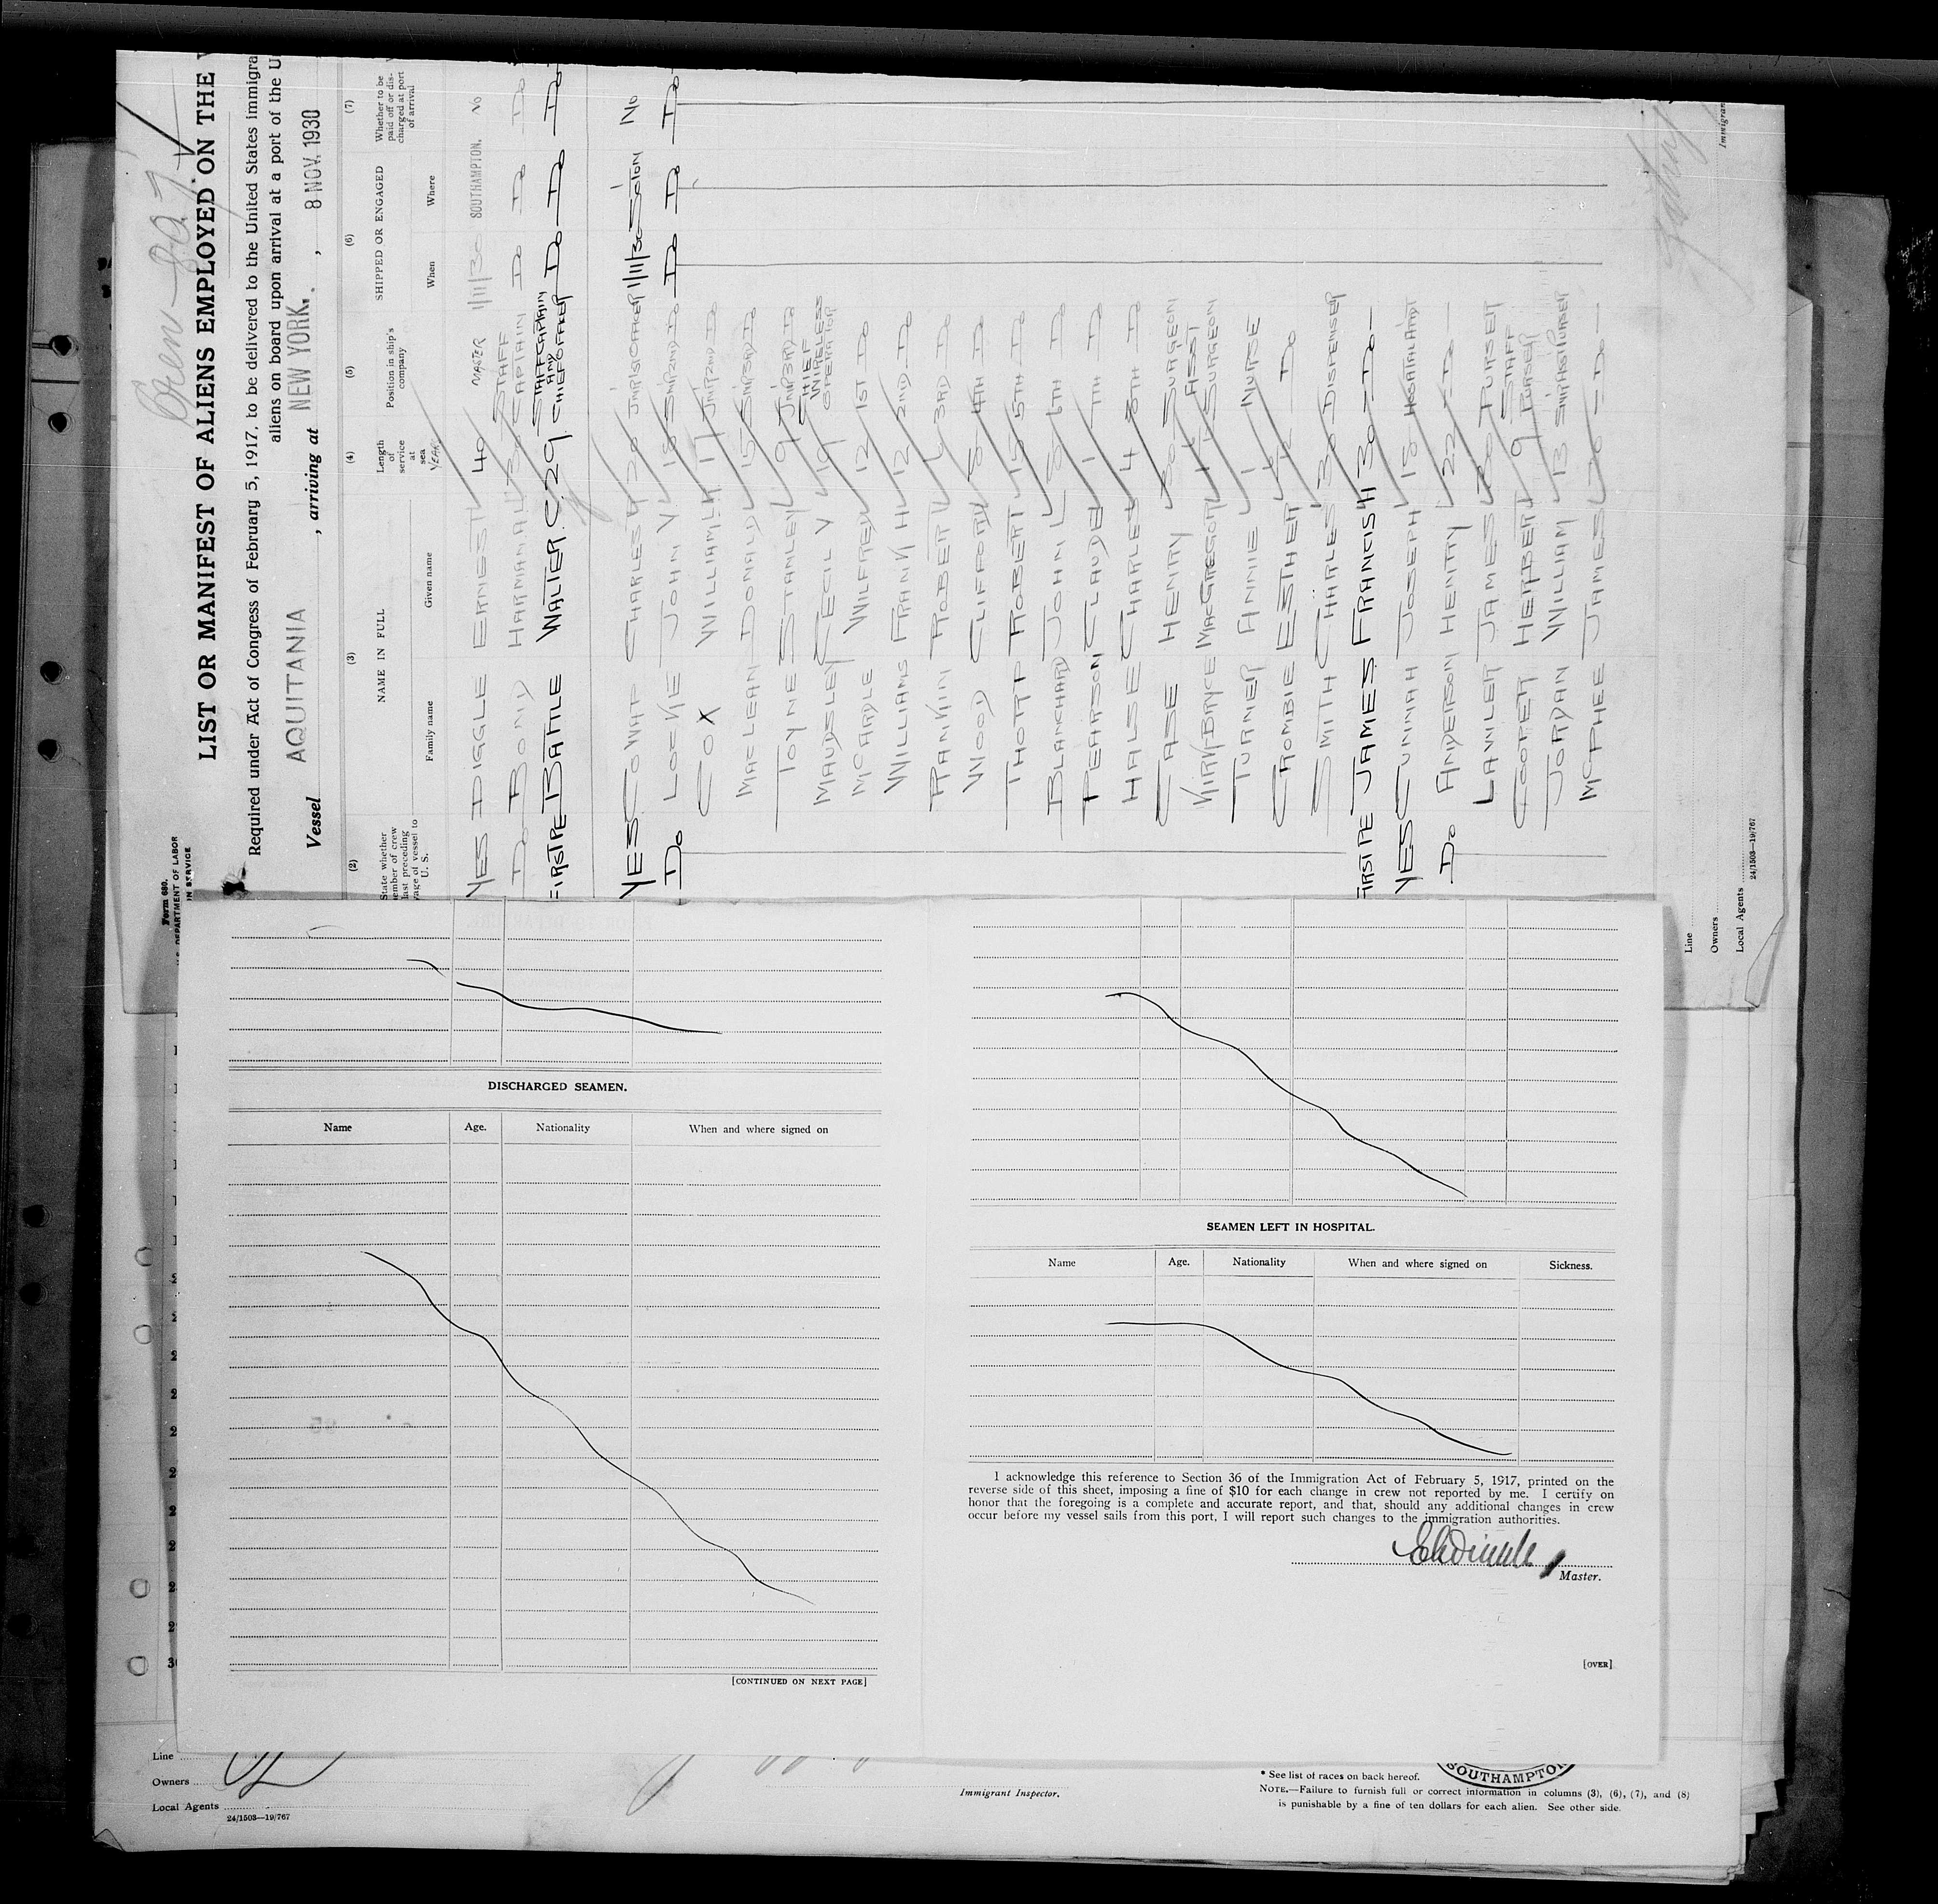 Form 680.
DEPARTMENT OF LABOR
LIST OR MANIFEST OF ALIENS EMPLOYED ON THE
Required under Act of Congress of February 5, 1917, to be delivered to the United States immigra
aliens on board upon arrival at a port of the U
Vessel AQUITANIA , arriving at NEW YORK. , 8 NOV. 1930
(2) (3) (4) (5) (6) (7)
State whether
member of crew
last preceding
voyage of vessel to
U. S.
NAME IN FULL
Family name Given name
Length
of
service
at
sea
YEARS
Position in ship's
company
SHIPPED OR ENGAGED
When Where
Whether to be
paid off or dis-
charged at port
of arrival
YES DIGGLE ERNEST 40 MASTER 1/11/30 SOUTHAMPTON. No
Do BOND HARMAN A. STAFF CAPTAIN Do Do Do
FIRST PE BATTLE WALTER. C. 29 STAFF CAPTAIN AND CHIEF OFFICER Do Do Do
YES COWAP CHARLES JNR 1/11/30 No
Do LOCKIE JOHN V 18 SNR 2ND Do Do Do Do
COX WILLIAM. H 17 JNR 2ND Do
MACLEAN DONALD 15 SNR 3RD Do
TOYNE STANLEY 9 JNR 3RD Do
MAUDSLEY CECIL V 19 CHIEF WIRELESS OPERATOR
MCARDLE WILFRED 12 1ST Do
WILLIAMS FRANK H 12 2ND Do
RANKIN ROBERT 3RD Do
WOOD CLIFFORD 4TH Do
THORP ROBERT 15 5TH Do
BLANCHARD JOHN L 6TH Do
PEARSON CLAUDE 1 7TH Do
HALSE CHARLES 4 8TH Do
CASE HENRY 30 SURGEON
KIRK BRYCE MACGREGOR ASST SURGEON
TURNER ANNIE 1 NURSE
CROMBIE ESTHER Do
SMITH CHARLES 30 DISPENSER
FIRST PE JAMES FRANCIS H 30 — Do —
YES CUNNAH JOSEPH 18
Do ANDERSON HENRY 22 — Do —
LAWLER JAMES 30 PURSER
COOPER HERBERT 9 STAFF PURSER
JORDAN WILLIAM 13 SNR ASST PURSER
MCPHEE JAMES — Do —
Line
Owners
Local Agents
24/1503—19/767
Immigran
DISCHARGED SEAMEN.
Name Age. Nationality When and where signed on
[CONTINUED ON NEXT PAGE]
SEAMEN LEFT IN HOSPITAL.
Name Age. Nationality When and where signed on Sickness.
I acknowledge this reference to Section 36 of the Immigration Act of February 5, 1917, printed on the
reverse side of this sheet, imposing a fine of $10 for each change in crew not reported by me. I certify on
honor that the foregoing is a complete and accurate report, and that, should any additional changes in crew
occur before my vessel sails from this port, I will report such changes to the immigration authorities.
Master.
[OVER]
Line
Owners
Local Agents
24/1503—19/767
Immigrant Inspector.
* See list of races on back hereof.
NOTE.—Failure to furnish full or correct information in columns (3), (6), (7), and (8)
is punishable by a fine of ten dollars for each alien. See other side.
SOUTHAMPTON